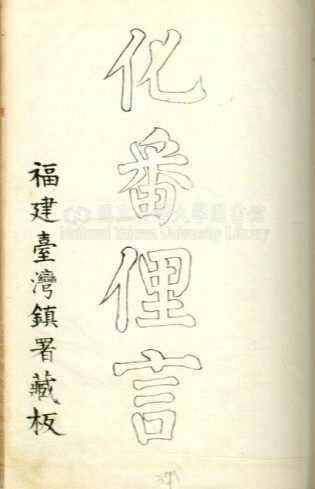 化番俚言
福建臺灣鎮署藏板
國立臺灣大學圖書館
National Taiwan University Library